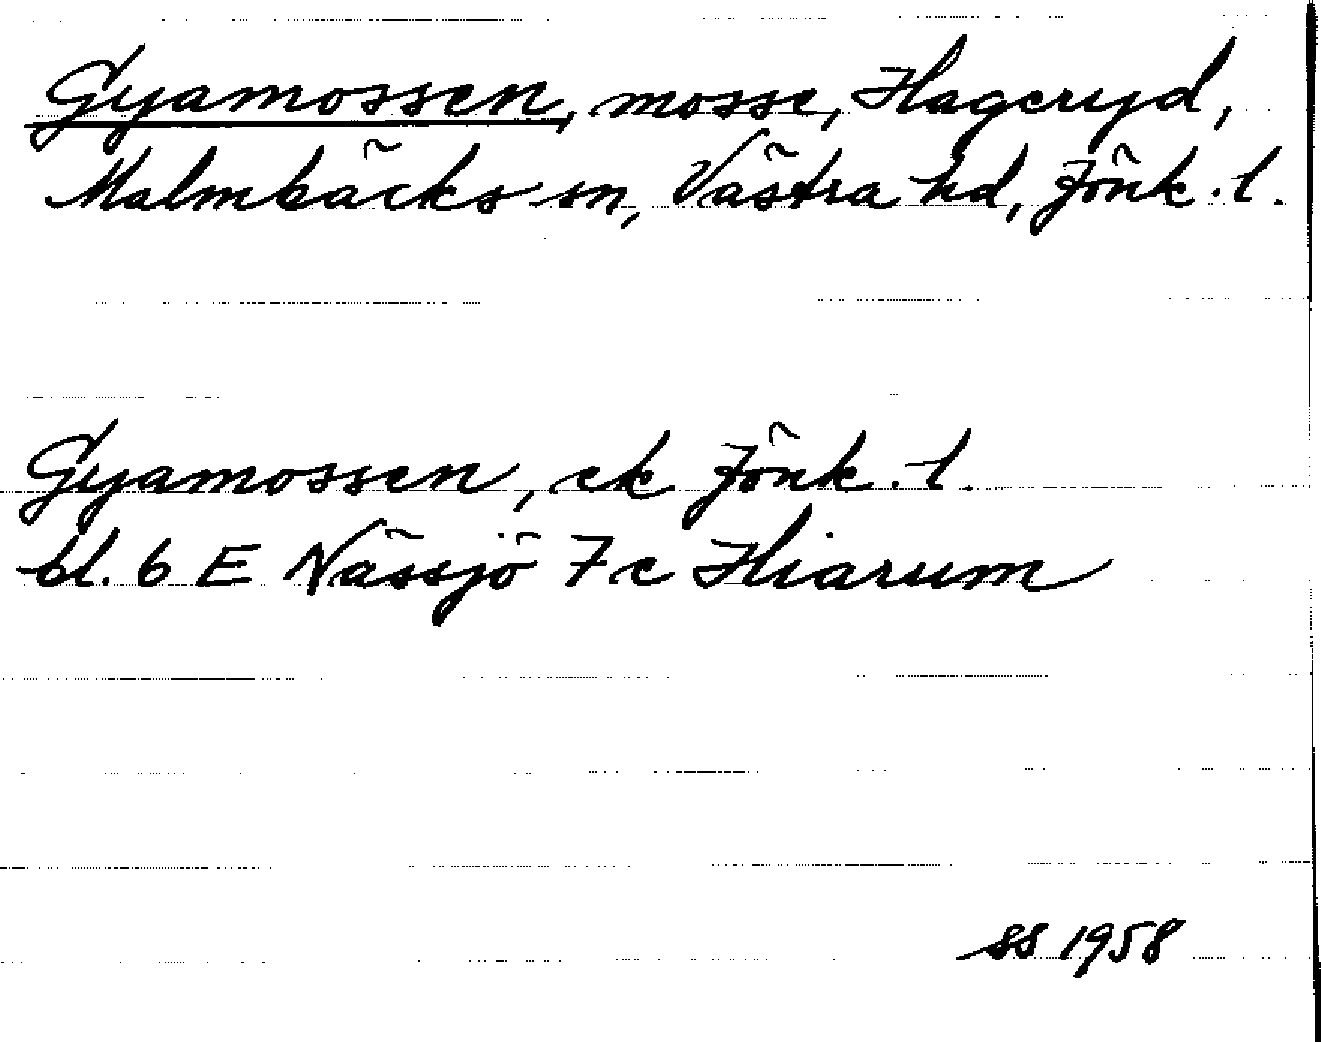 Gyamossen, mosse, Hageryd,
Malmbäcks sn, Västra hd, Jönk. l.
Gyamossen, ek Jönk. l.
bl. 6 E Nässjö 7c Hiarum
SS 1958